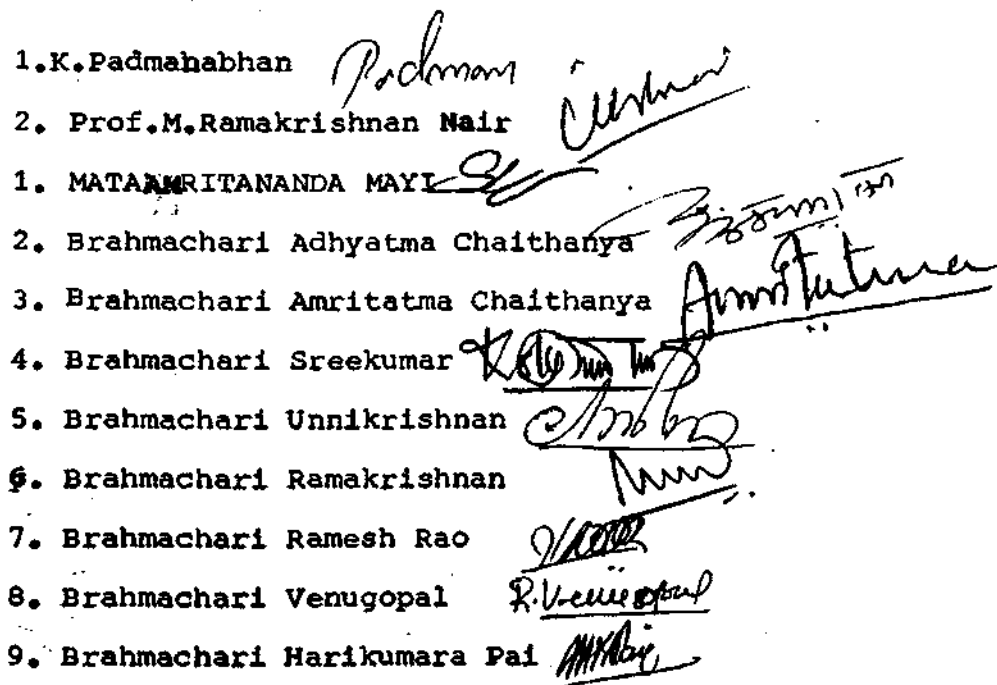 1.K.Padmanabhan Padmam
2. Prof.M.Ramakrishnan Nair
1. MATAAMRITANANDA MAYI
2. Brahmachari Adhyatma Chaithanya
3. Brahmachari Amritatma Chaithanya Amritatma
4. Brahmachari Sreekumar
5. Brahmachari Unnikrishnan
6. Brahmachari Ramakrishnan
7. Brahmachari Ramesh Rao
8. Brahmachari Venugopal R.Venugopal
9. Brahmachari Harikumara Pai